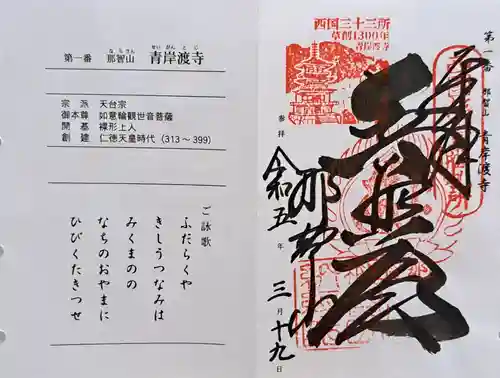 第一番 那智山 青岸渡寺
なちさん せいがんとじ
宗派 天台宗
御本尊 如意輪観世音菩薩
開基 裸形上人
創建 仁徳天皇時代（313～399）
ご詠歌
ふだらくや
きしうつなみは
みくまのの
なちのおやまに
ひびくたきつせ
西国三十三所
草創1300年
青岸渡寺
第一番 那智山 青岸渡寺
奉拝
令和五年三月十九日
那智山